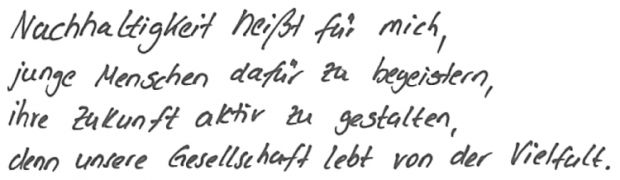 Nachhaltigkeit heißt für mich,
junge Menschen dafür zu begeistern,
ihre Zukunft aktiv zu gestalten,
denn unsere Gesellschaft lebt von der Vielfalt.